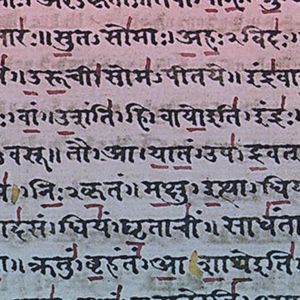 तारः॥ सुतऽसोमाः। अहःऽविदः
॥ उरूची सोमऽपीतये॥ इंद्रवा
वां। उशंति। हि॥ वायो इति। इंद्रः
वसू॥ तौ। आ। यातं। उप। द्रवत
निःऽकृतं॥ मक्षु। इत्था। धि
दसं। धियं। घृताचीं। साधंता
॥ ऋतुं। बृहंतं। आशाथे इति